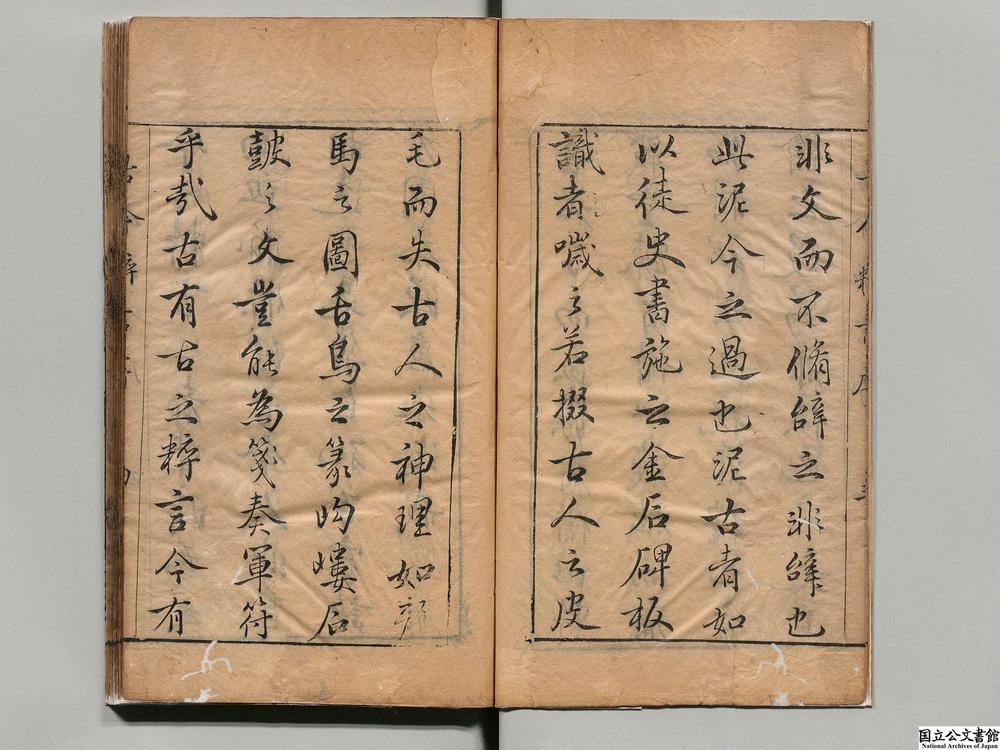 非文而不脩辭之非辭也
此泥今之過也泥古者如
以徒史書施之金石碑板
識者嗤之若掇古人之皮
毛而失古人之神理如
馬之圖舌鳥之篆岣嶁石
鼓之文豈能為箋奏軍符
乎哉古有古之粹言今有
国立公文書館
National Archives of Japan